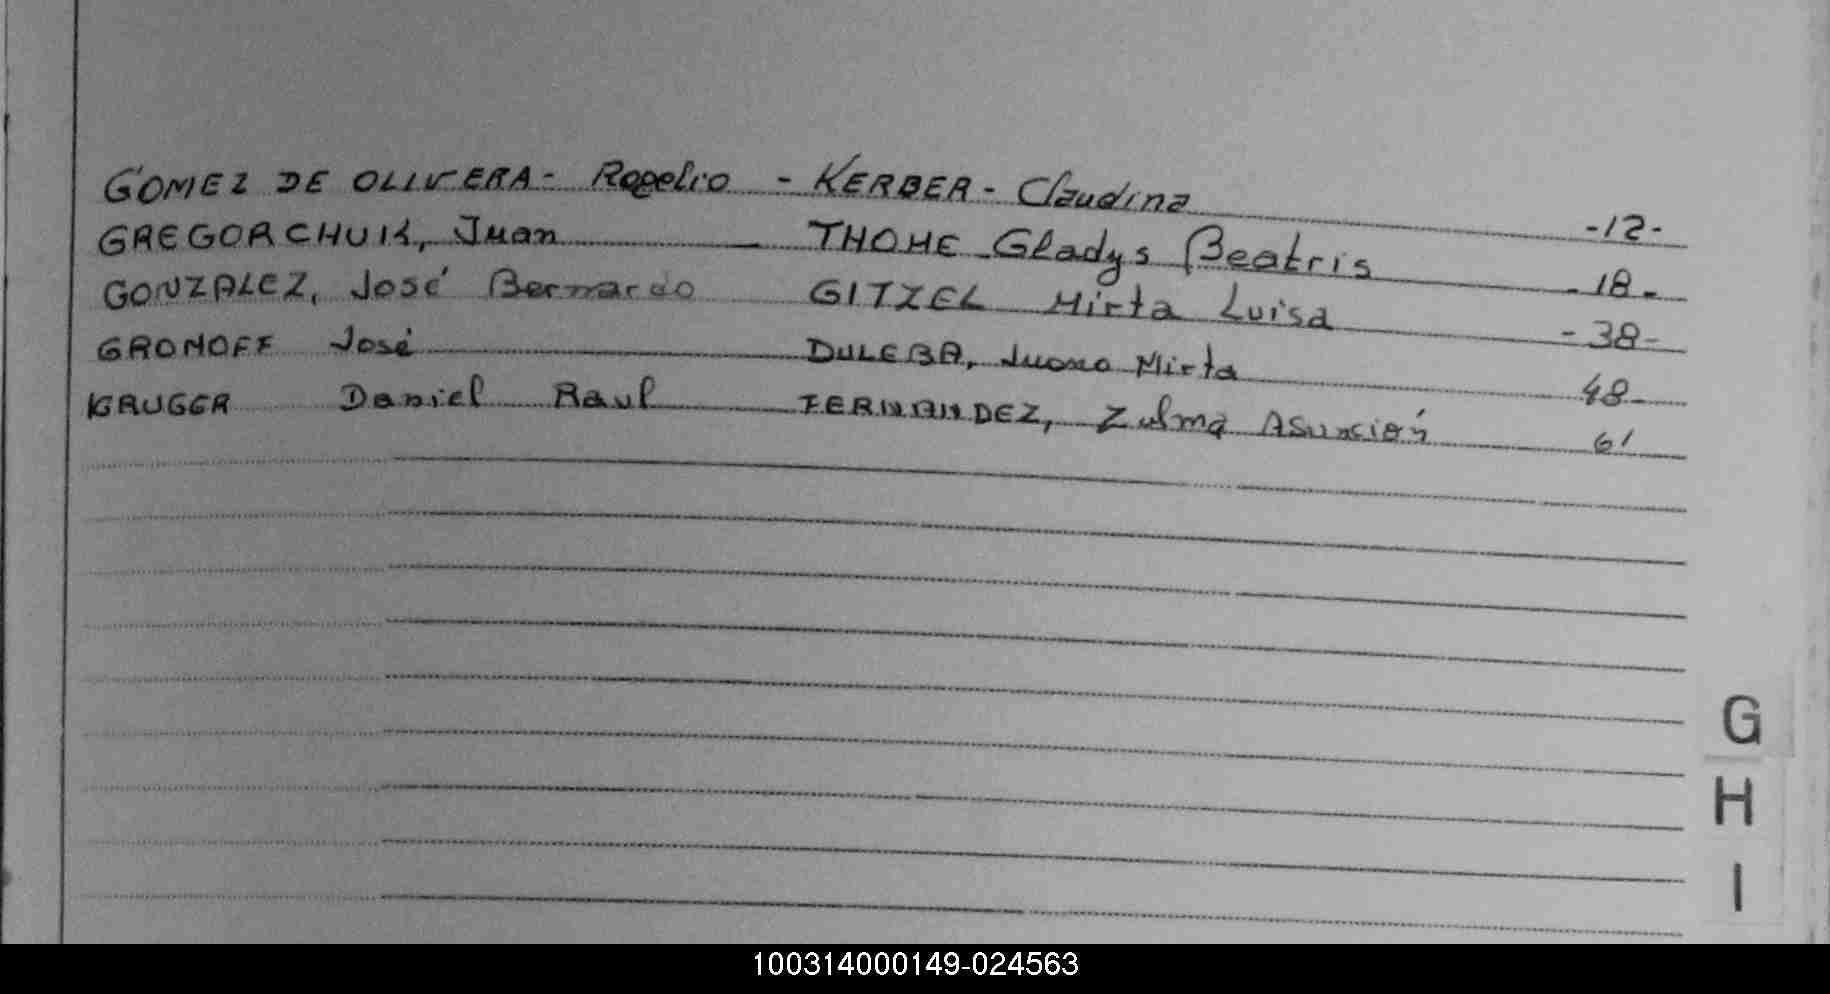 GOMEZ DE OLIVERA - Rogelio - KERBER - Claudina -12-
GREGORCHUK, Juan — THOME Gladys Beatris -18-
GONZALEZ, José Bernardo GITZEL Mirta Luisa -38-
GROMOFF José DULEBA, Juana Mirta 48-
KRUGER Daniel Raul FERNANDEZ, Zulma Asunción 61
G
H
I
100314000149-024563